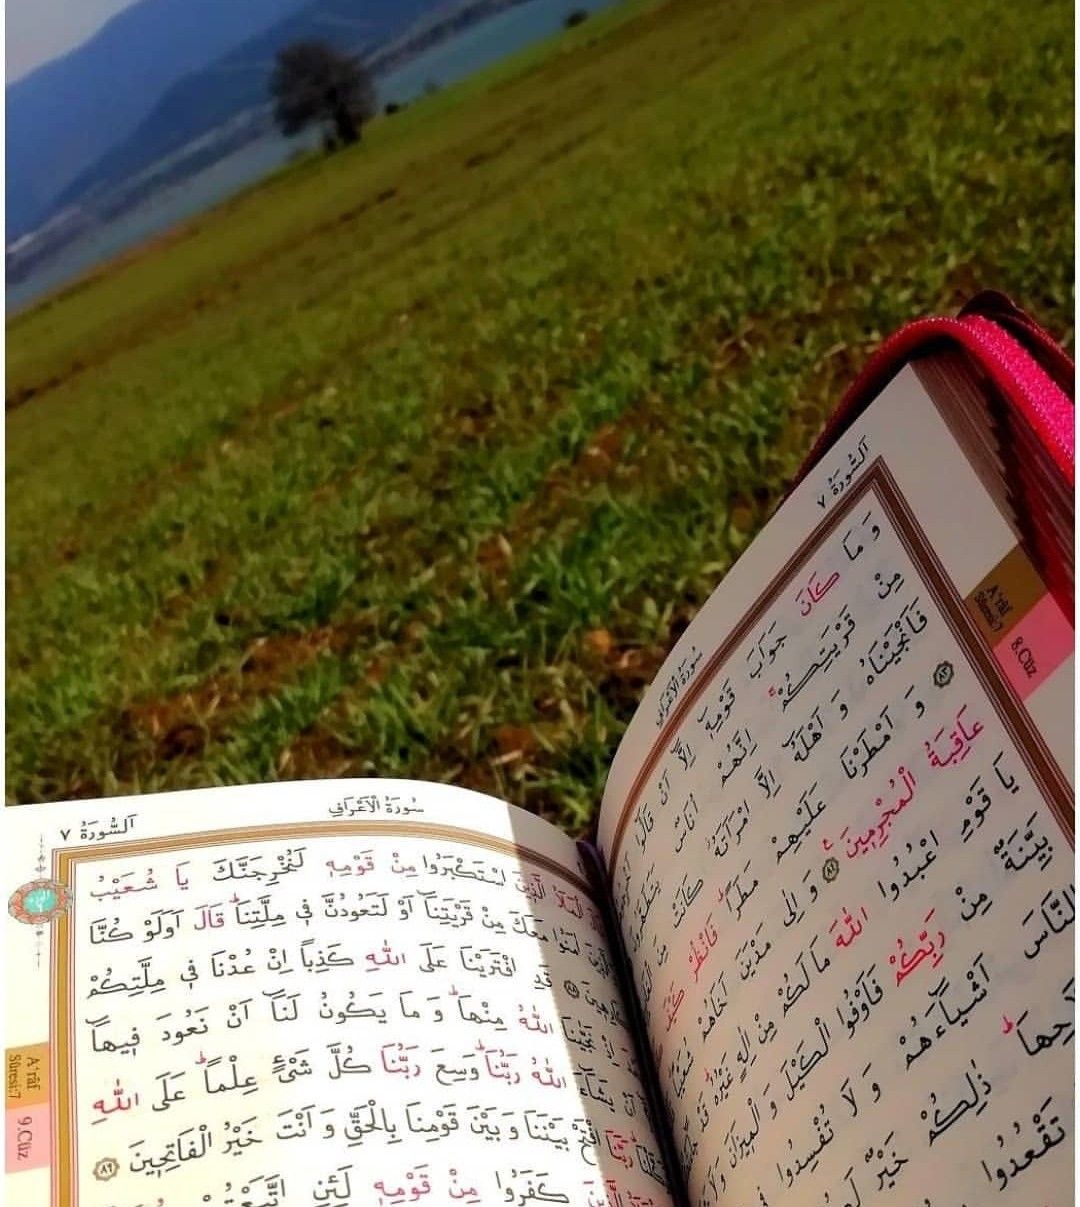 اَلسُّورَةُ ٧
سُورَةُ الْاَعْرَافِ
وَ مَا كَانَ جَوَابَ قَوْمِهٖ اِلَّٓا اَنْ قَالُٓوا
مِنْ قَرْيَتِكُمْۚ اِنَّهُمْ اُنَاسٌ
﴿٨٢﴾ فَاَنْجَيْنَاهُ وَ اَهْلَهُٓ اِلَّا امْرَاَتَهُ كَانَتْ مِنَ
وَ اَمْطَرْنَا عَلَيْهِمْ مَطَرًاۜ فَانْظُرْ كَيْفَ
عَاقِبَةُ الْمُجْرِمٖينَ ﴿٨٤﴾ وَ اِلٰى مَدْيَنَ اَخَاهُمْ
يَا قَوْمِ اعْبُدُوا اللّٰهَ مَا لَكُمْ مِنْ اِلٰهٍ غَيْرُهُۜ قَدْ
بَيِّنَةٌ مِنْ رَبِّكُمْ فَاَوْفُوا الْكَيْلَ وَ الْمٖيزَانَ وَلَا
النَّاسَ اَشْيَٓاءَهُمْ وَ لَا تُفْسِدُوا
ذٰلِكُمْ خَيْرٌ
تَقْعُدُوا
A'râf
Sûresi:7
8.Cüz
اَلسُّورَةُ ٧
سُورَةُ الْاَعْرَافِ
الْمَلَاُ الَّذٖينَ اسْتَكْبَرُوا مِنْ قَوْمِهٖ لَنُخْرِجَنَّكَ يَا شُعَيْبُ
مَعَكَ مِنْ قَرْيَتِنَٓا اَوْ لَتَعُودُنَّ فٖى مِلَّتِنَاۜ قَالَ اَوَلَوْ كُنَّا
قَدِ افْتَرَيْنَا عَلَى اللّٰهِ كَذِبًا اِنْ عُدْنَا فٖى مِلَّتِكُمْ
اللّٰهُ مِنْهَاۜ وَ مَا يَكُونُ لَنَٓا اَنْ نَعُودَ فٖيهَٓا
اَنْ يَشَٓاءَ اللّٰهُ رَبُّنَاۜ وَسِعَ رَبُّنَا كُلَّ شَىْءٍ عِلْمًاۜ عَلَى اللّٰهِ
رَبَّنَا افْتَحْ بَيْنَنَا وَ بَيْنَ قَوْمِنَا بِالْحَقِّ وَ اَنْتَ خَيْرُ الْفَاتِحٖينَ ﴿٨٩﴾
كَفَرُوا مِنْ قَوْمِهٖ لَئِنِ اتَّبَعْتُمْ
A'râf
Sûresi:7
9.Cüz